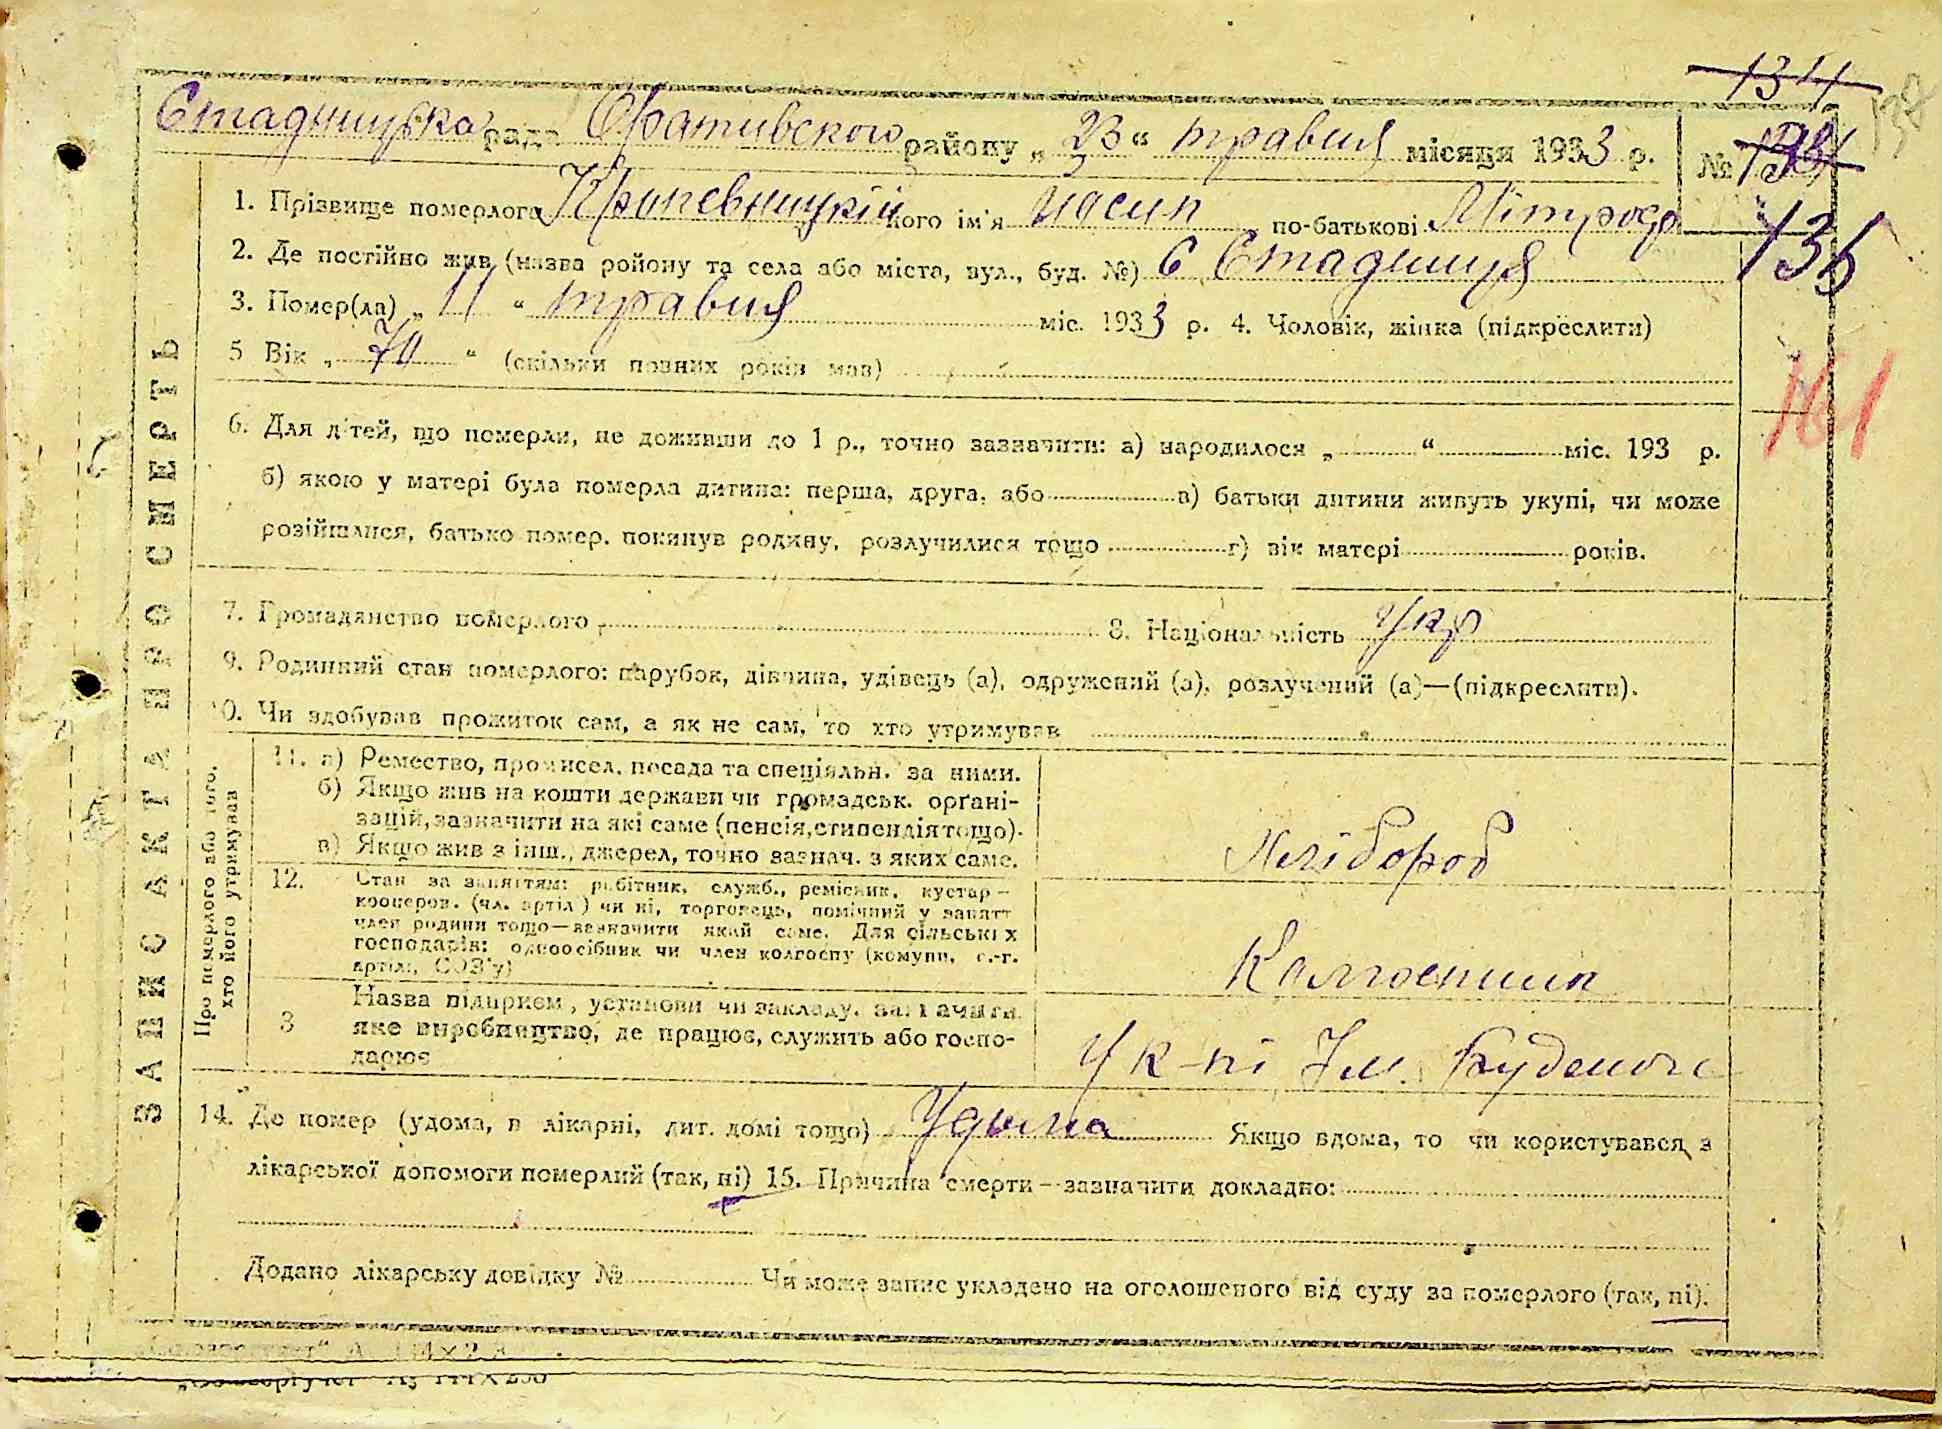 134
138
Стадницька рада Оративского району „23“ травня місяця 1933 р. №
136
1. Прізвище померлого Кропевницкій його ім'я Иосип по-батькові Мітроф
2. Де постійно жив (назва району та села або міста, вул., буд. №) С Стадниця
3. Помер(ла) „11“ травня міс. 1933 р. 4. Чоловік, жінка (підкреслити)
5 Вік „70“ (скільки повних років мав)
161
6. Для дітей, що померли, не доживши до 1 р., точно зазначити: а) народилося „ “ міс. 193 р.
б) якою у матері була померла дитина: перша, друга, або в) батьки дитини живуть укупі, чи може
розійшлися, батько помер, покинув родину, розлучилися тощо г) вік матері років.
7. Громадянство померлого 8. Національність Укр
9. Родинний стан померлого: парубок, дівчина, удівець (а), одружений (а), розлучений (а)—(підкреслити).
10. Чи здобував прожиток сам, а як не сам, то хто утримував
ЗАПИС АКТА ПРО СМЕРТЬ
Про померлого або того,
хто його утримував
11. а) Ремество, промисел, посада та спеціяльн. за ними.
б) Якщо жив на кошти держави чи громадськ. орґані-
зацій, зазначити на які саме (пенсія, стипендія тощо).
в) Якщо жив з інш., джерел, точно зазнач. з яких саме.
Хлібороб
12. Стан за заняттям: робітник, служб., ремісник, кустар—
кооперов. (чл. артіл) чи ні, торговець, помічний у занятт
член родини тощо—зазначити який саме. Для сільських
господарів: одноосібник чи член колгоспу (комуни, с.-г.
артілі, СОЗ'у)
Колгоспник
3 Назва підприєм, установи чи закладу, зазначити
яке виробництво, де працює, служить або госпо-
дарює
У к-пі Ім. Буденого
14. Де помер (удома, в лікарні, дит. домі тощо) Удома Якщо вдома, то чи користувався з
лікарської допомоги померлий (так, ні) 15. Причина смерти—зазначити докладно:
Додано лікарську довідку № Чи може запис укладено на оголошеного від суду за померлого (так, ні).